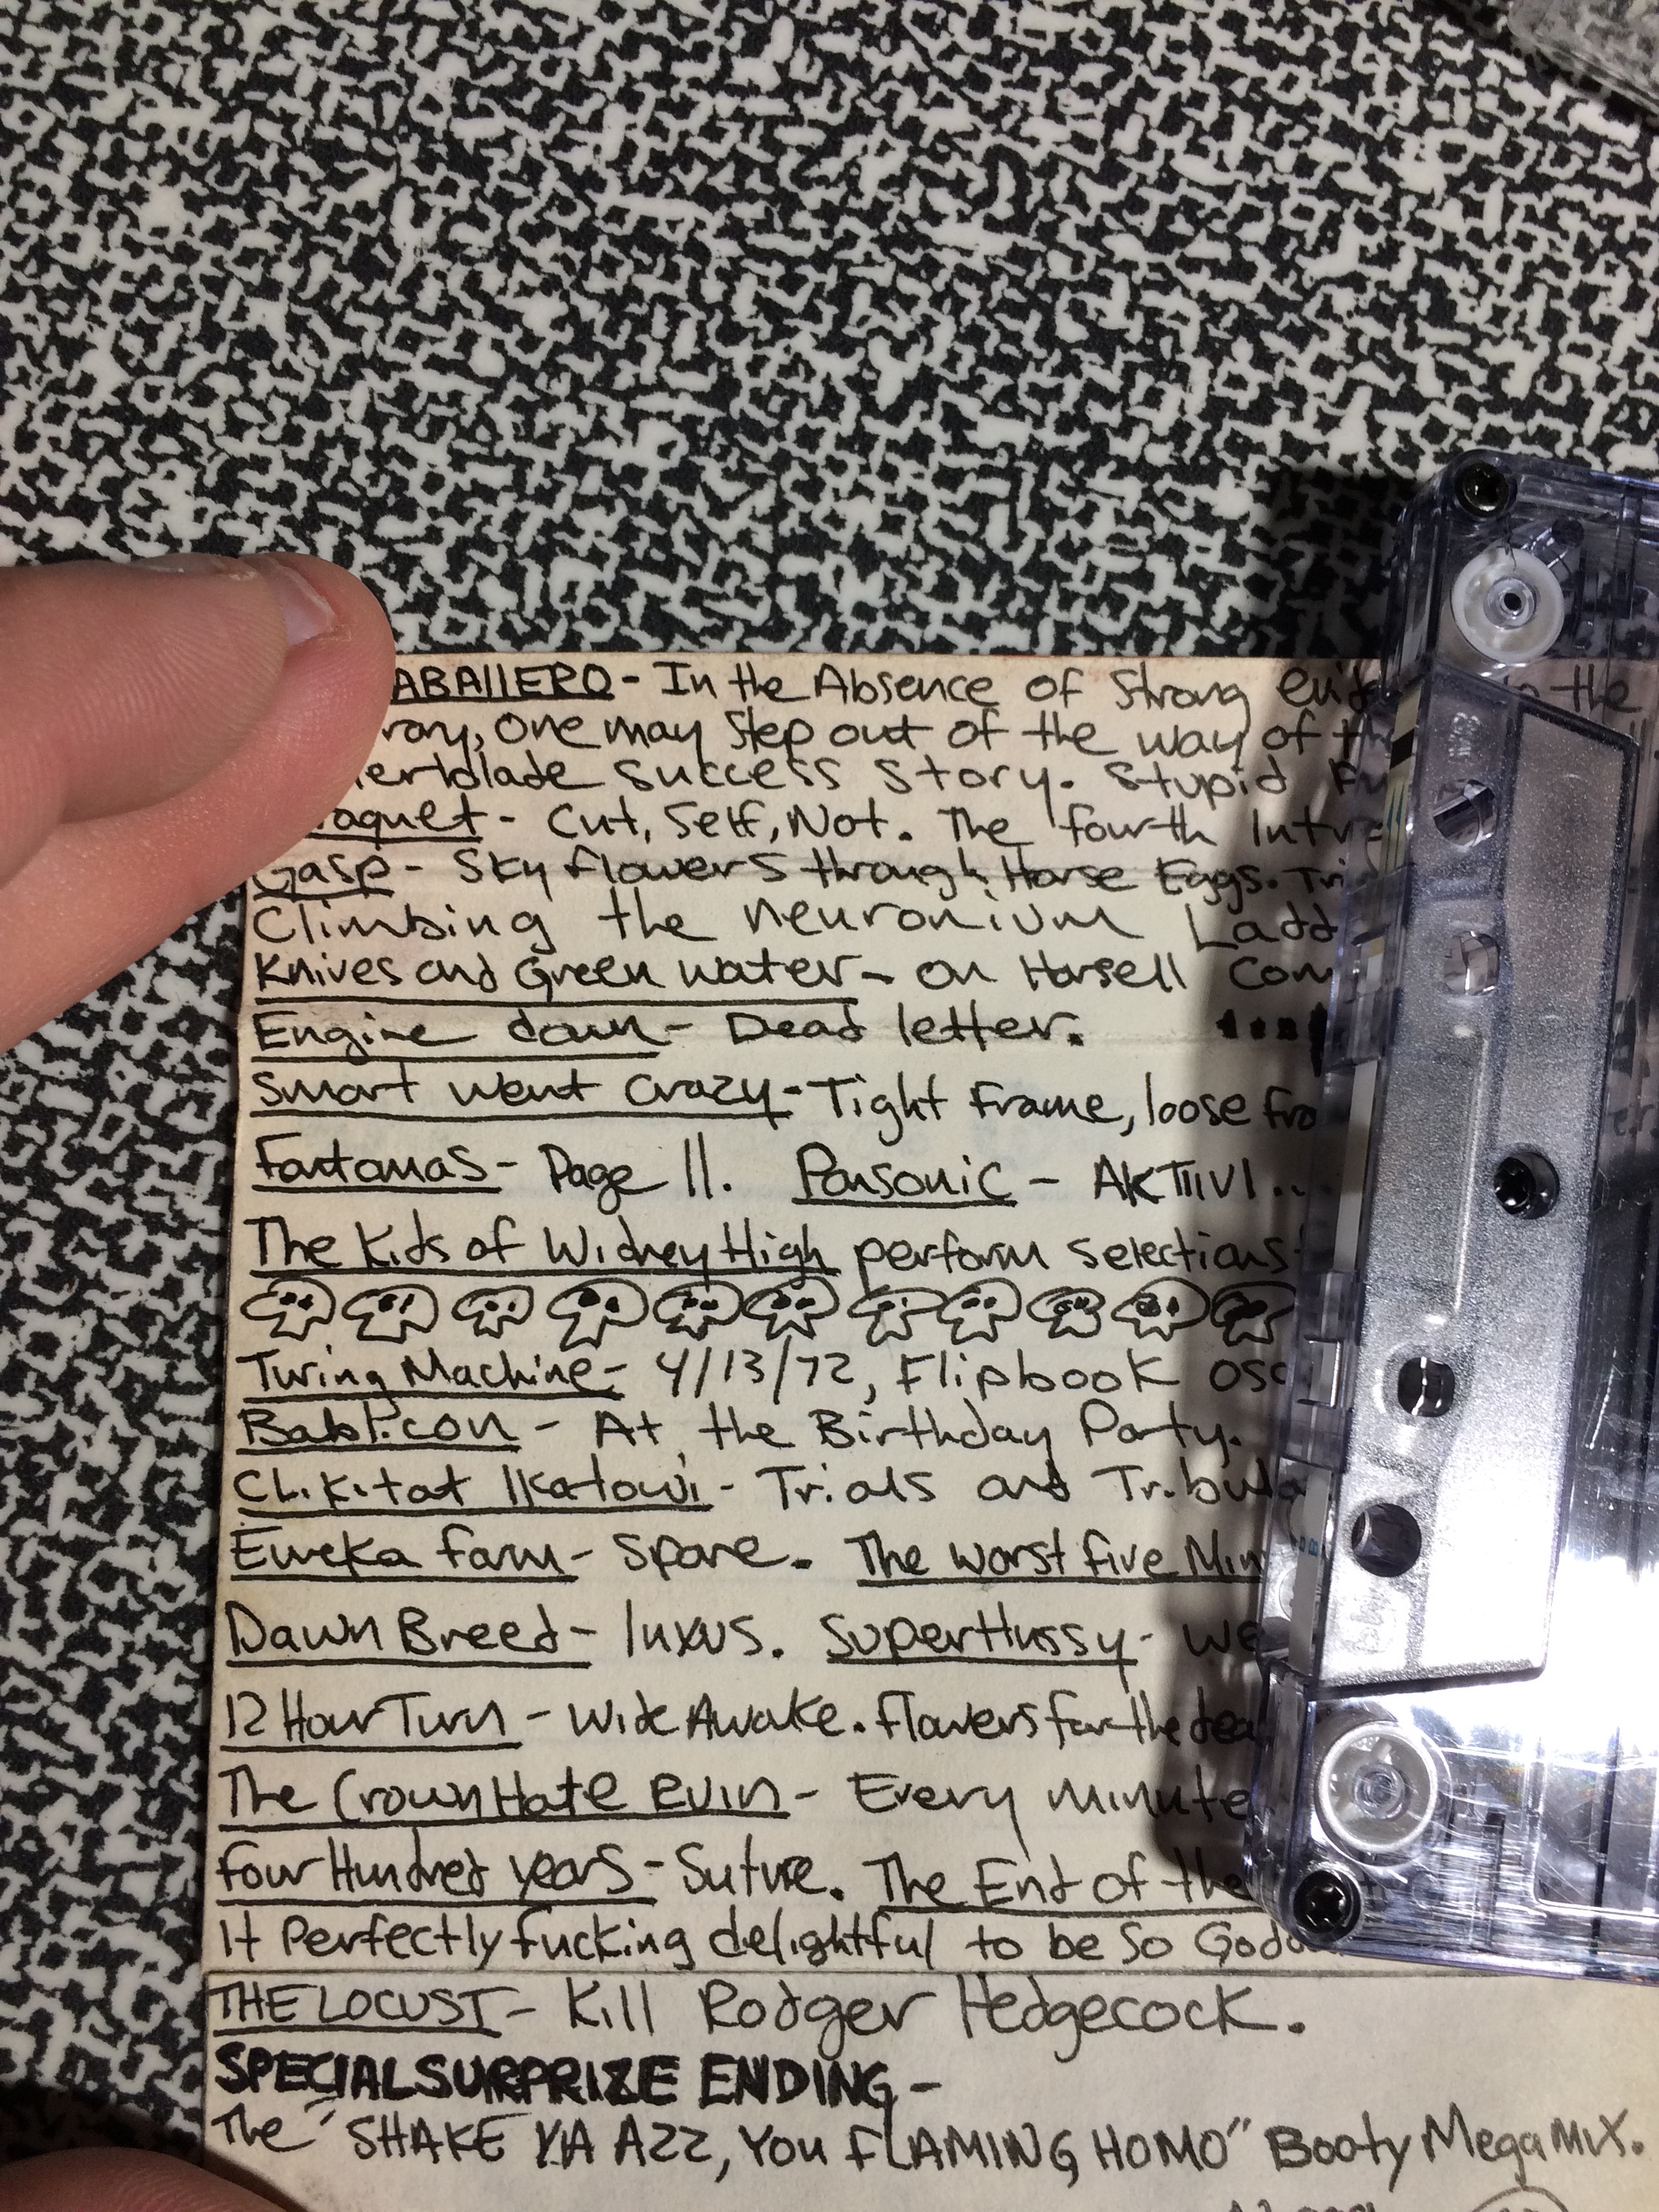 ABAllERO - In the Absence of Strong evid the
rary, one may step out of the way of th
ertblade success story. Stupid Fu
raquet - Cut, Self, Not. The fourth Intra
Gasp - Sky flowers through Horse Eggs. Tri
Climbing the neuronium Ladd
Knives and Green water - on Horsell Com
Engine down - Dead letter.
Smart went Crazy - Tight Frame, loose fra
Fantomas - Page 11. Pansonic - AKTIIVI...
The Kids of Widney High perform selections
Turing Machine - 4/13/72, Flipbook osc
Bablicon - At the Birthday Party.
Chikitat Ikatowi - Trials and Tribula
Eureka farm - Spore. The worst five Min
Dawn Breed - luxus. SuperHussy - We
12 Hour Turn - Wide Awake. Flowers for the dea
The Crown Hate Ruin - Every Minute
four Hundred years - Suture. The End of the
It Perfectly fucking delightful to be So Godd
THE LOCUST - Kill Rodger Hedgecock.
SPECIAL SURPRIZE ENDING -
The "SHAKE YA AZZ, You FLAMING HOMO" Booty Mega Mix.